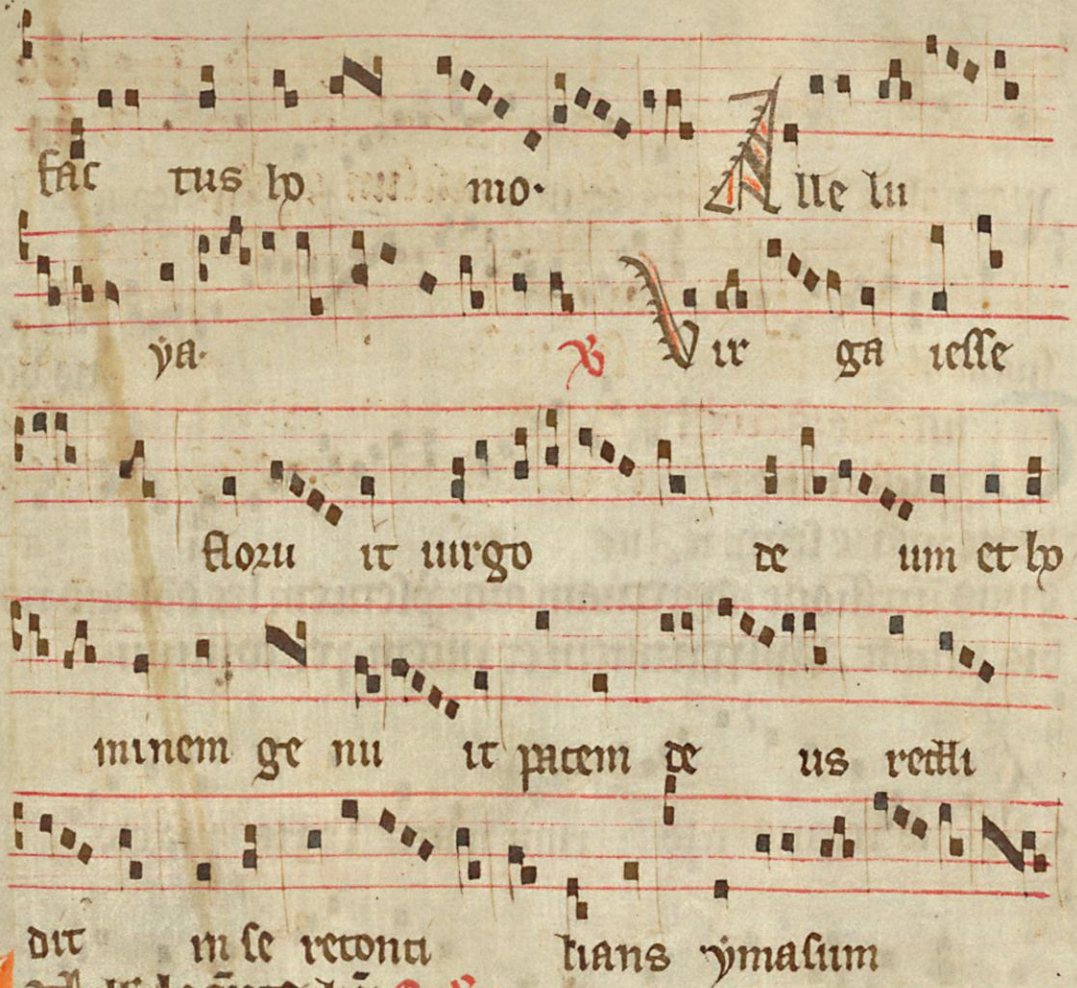 fac tus ho mo. Alle lu
ya. ℣ Vir ga iesse
floru it uirgo de um et ho
minem ge nu it pacem de us reddi
dit in se reconci lians ymasum